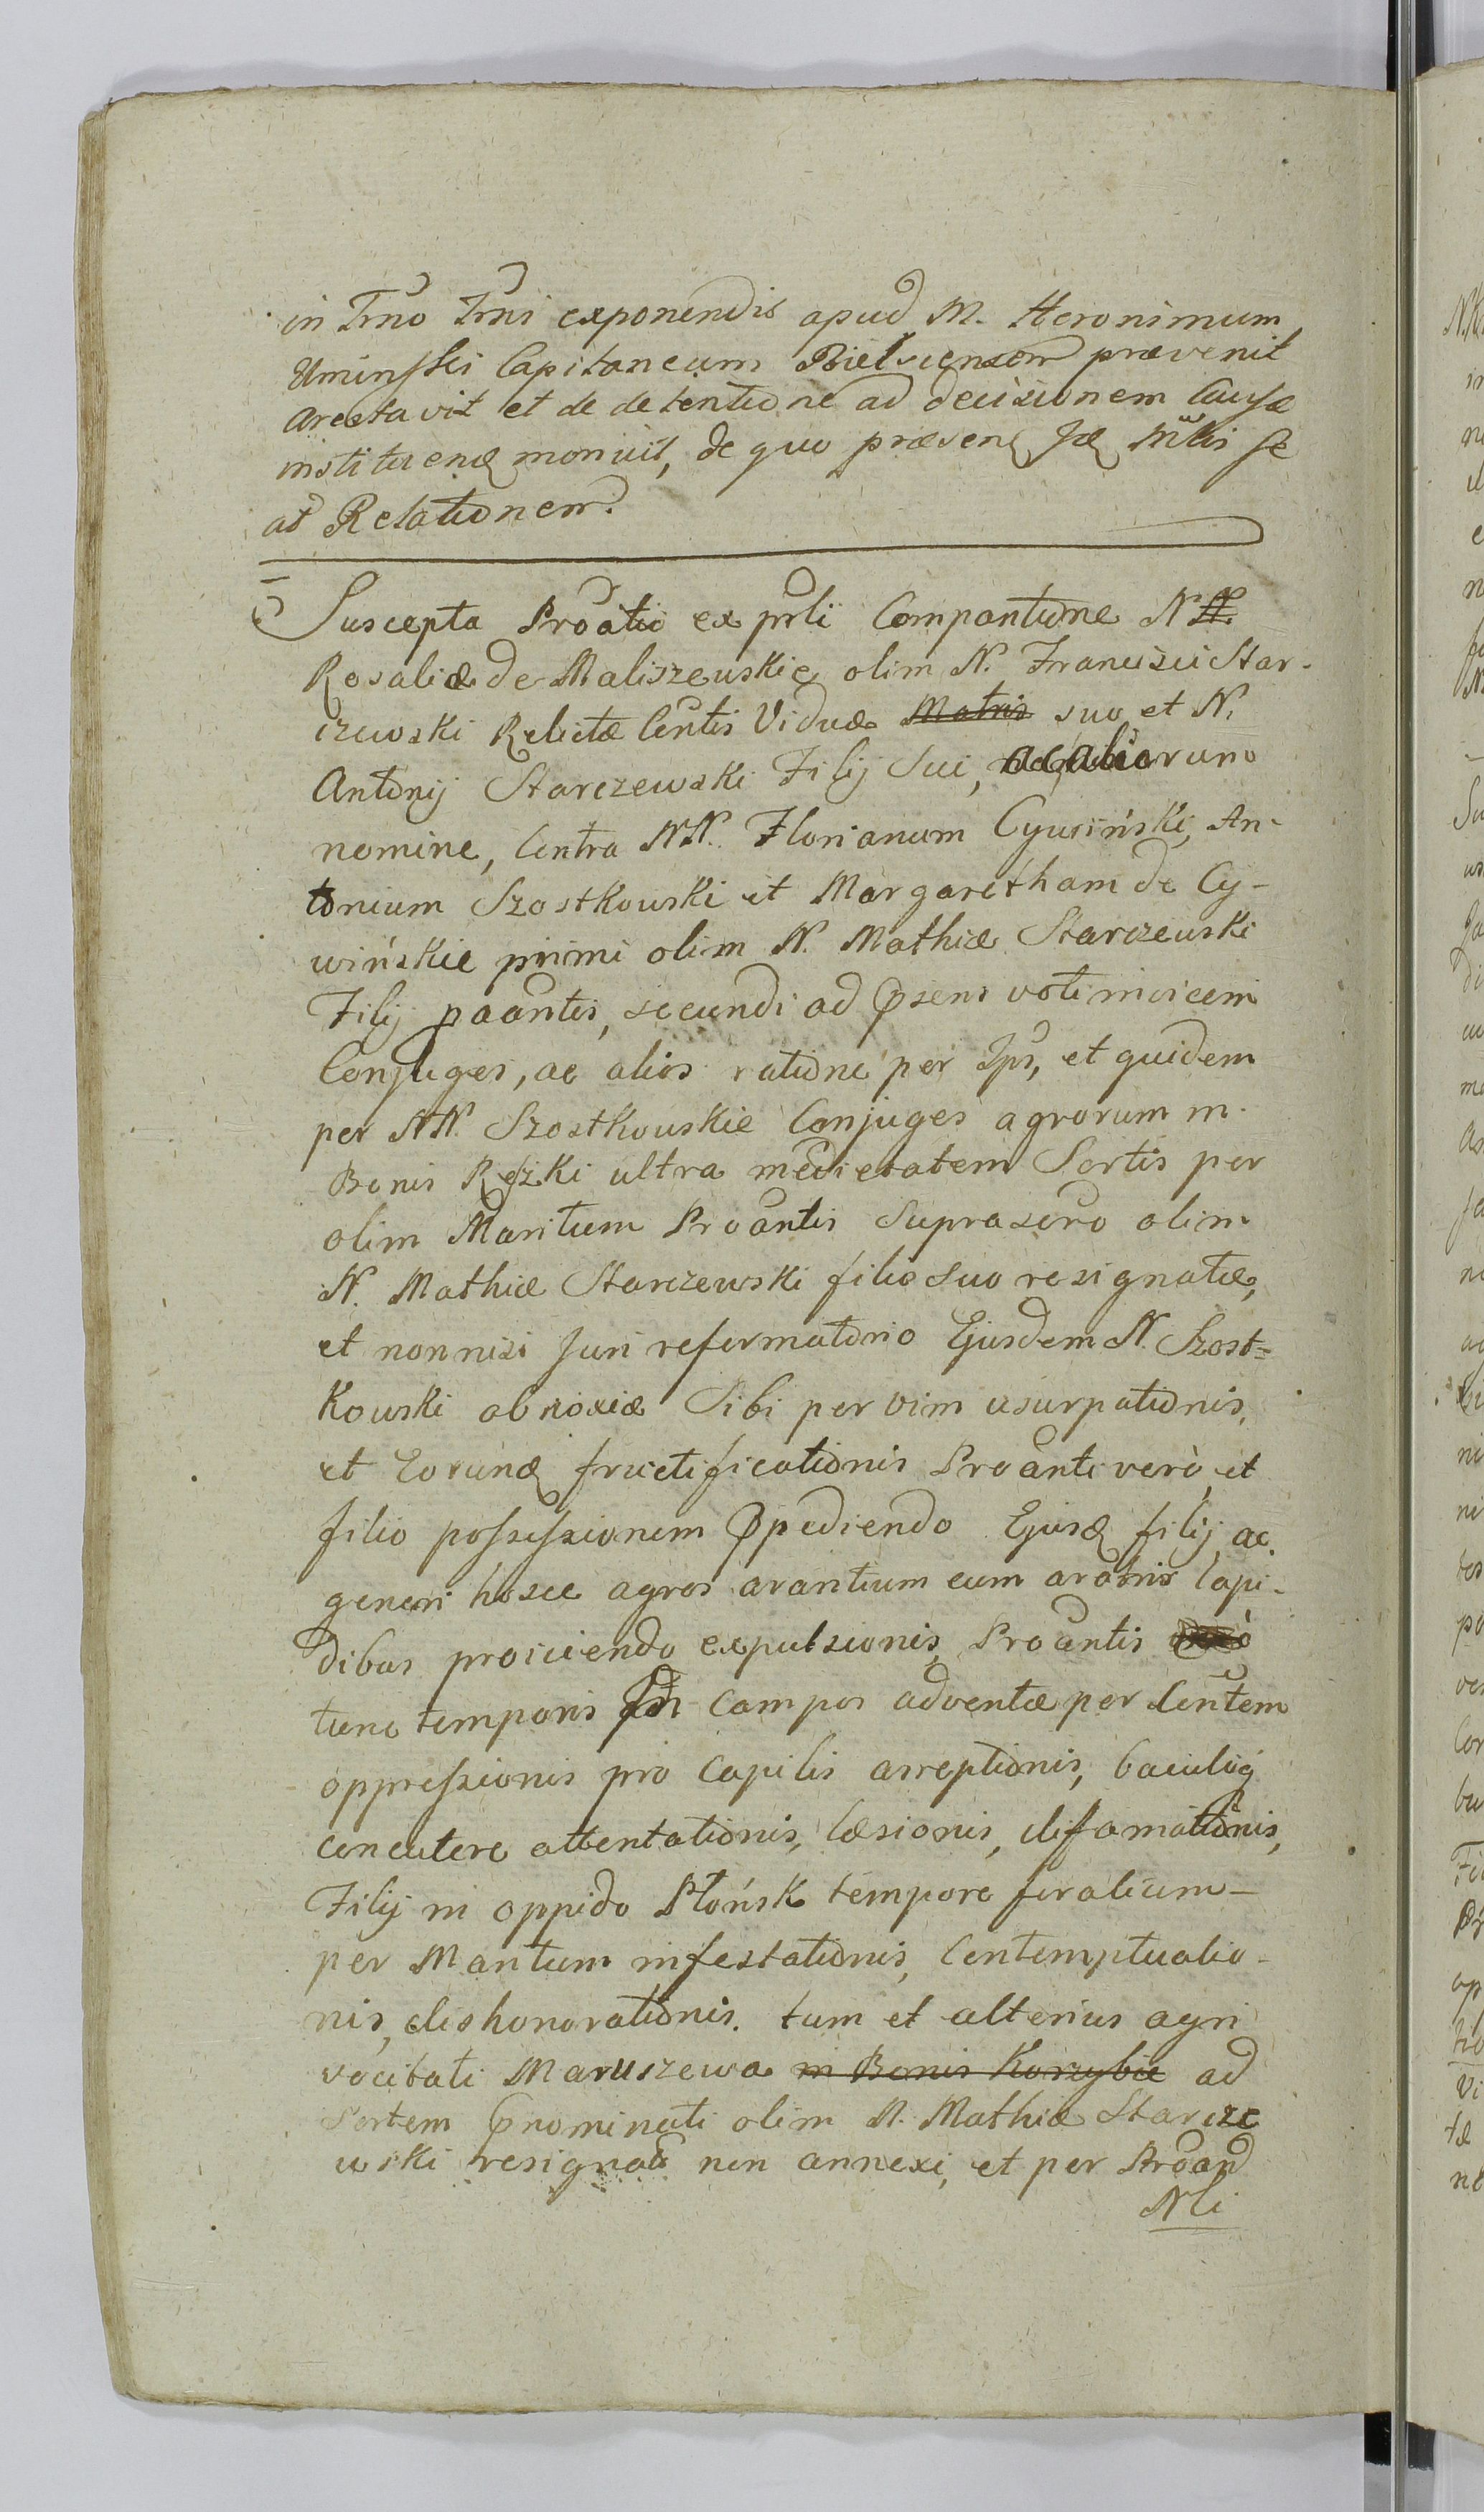 in Trno Trni exponendis apud M. Heronimum
Uminſki Capitaneum Bielscensem prævenit
arestavit et de detentione ad decisionem Causæ
instituend monuit, de quo præsen Jæ Mlti se
ad Relationem.
Suscepta Proatio ex prli Compantione N N.
Rosaliæ de Maliszewskie olim N. Francisci Star-
czewski Relictæ Contis Viduæ Matris suo et N.
Antonij Starczewski Filij Sui, ac aliorum
nomine, Contra NN. Florianum Cywiński, An-
tonium Szostkowski et Margaretham de Cy-
wińskie primi olim N. Mathiæ Starczewski
Filij paantis, secundi ad psens voti invicem
Conjuges, ac alios ratione per Ips, et quidem
per NN. Szostkowskie Conjuges agrorum in
Bonis Reszki ultra medietatem Sortis per
olim Maritum Proantis Suprascro olim
N. Mathiæ Starczewski filio suo resignatæ,
et nonnisi Juri reformatorio Ejusdem N. Szost=
kowski obnoxiæ Sibi per vim usurpationis,
et Eorund fructificationis Proanti verò, et
filio possessionem ppediendo Ejusd filij, ac
generi hosce agros arantium cum aratris lapi-
dibus proiiciendo expulsionis, Proantis
tunc temporis in campos adventæ per Contem
oppressionis pro capilis arreptionis, baculoq
concutere attentationis, læsionis, difamationis,
Filij in oppido Płońsk tempore foralium
per Maritum infestationis, Contemptuatio-
nis, dishonorationis. tum et alterius agri
vocitati Maruszewa in Bonis Korzybie ad
Sortem pnominati olim N. Mathiæ Starcze
wski resignat non annexi, et per Proand
Nli